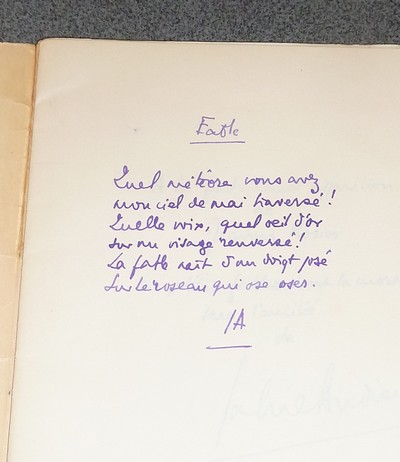 Fable
Quel météore vous avez
mon ciel de mai traversé !
Quelle voix, quel oeil d'or
sur un visage renversé !
La fable naît d'un doigt posé
sur le roseau qui ose oser.
JA